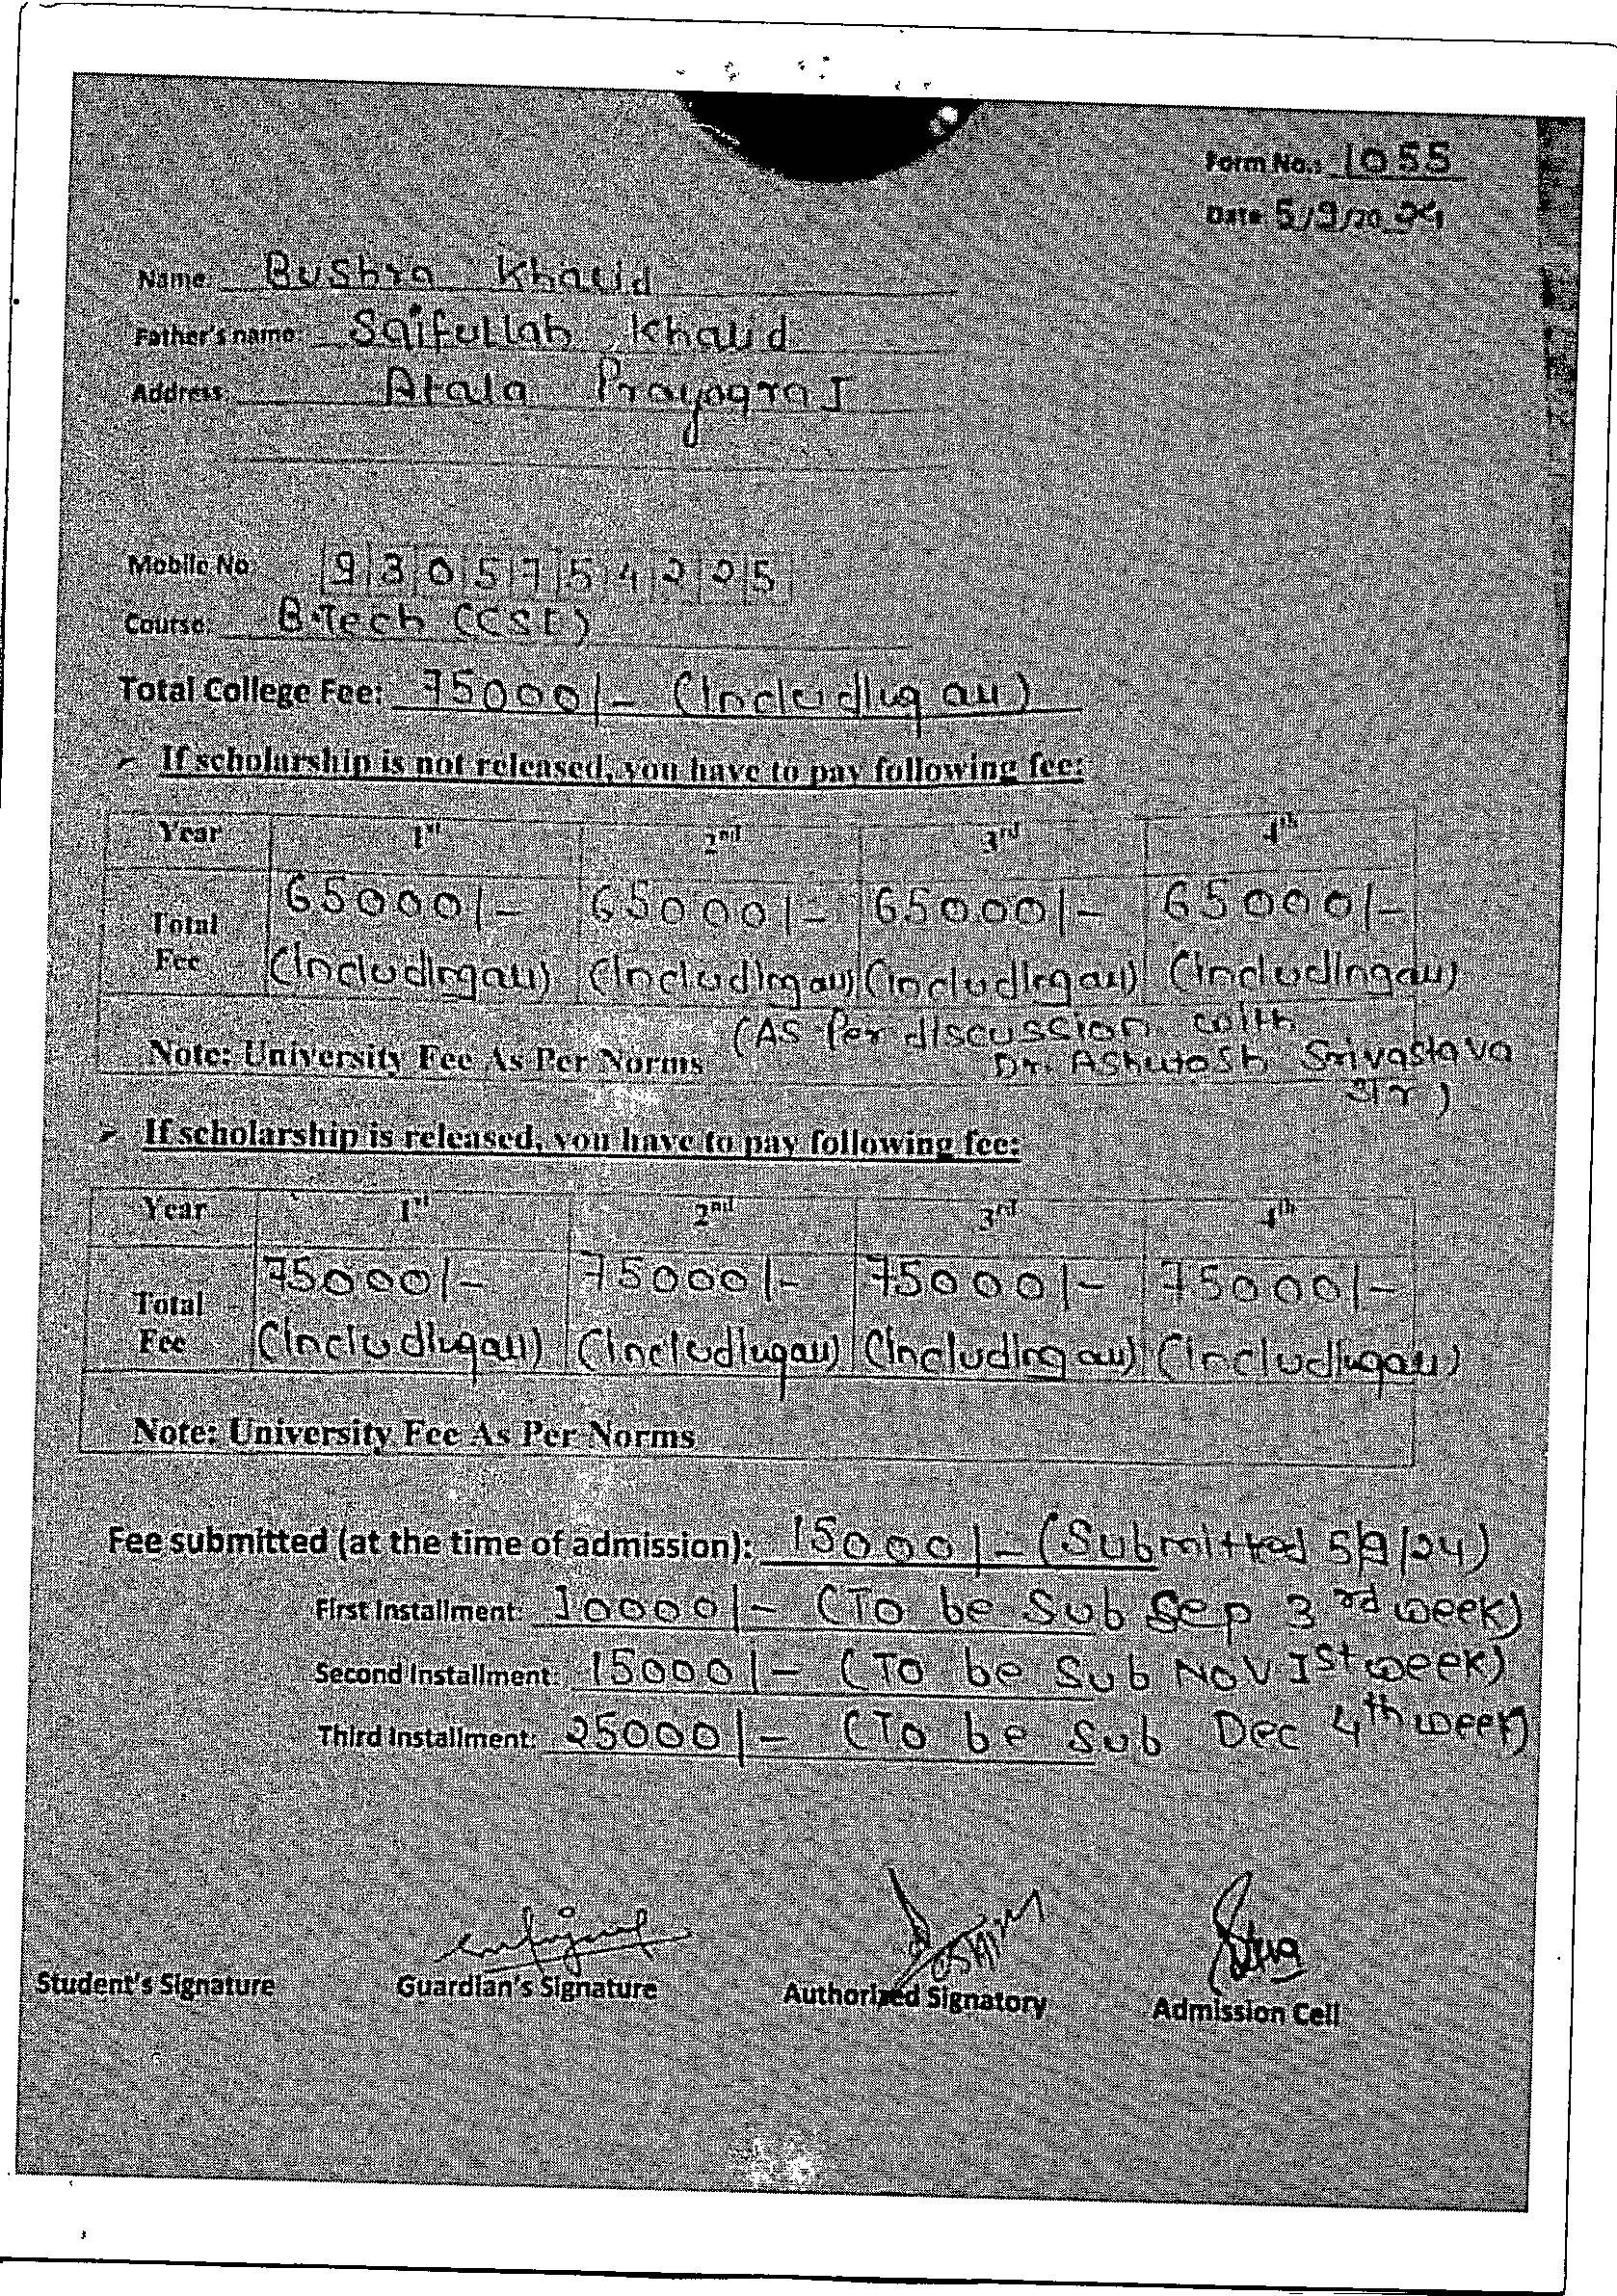 Form No.: 1055
Date 5/9/2024
Name: Bushra Khalid
Father's name: Saifullah Khalid
Address: Atala Prayagraj
Mobile No 9305754225
Course: B.Tech (CSE)
Total College Fee: 75000/- (Including all)
➢ If scholarship is not released, you have to pay following fee:
Year 1st 2nd 3rd 4th
Total Fee 65000/- 65000/- 65000/- 65000/-
(Including all) (Including all) (Including all) (Including all)
(As Per discussion with
Note: University Fee As Per Norms Dr. Ashutosh Srivastava
➢ If scholarship is released, you have to pay following fee:
Year 1st 2nd 3rd 4th
Total Fee 75000/- 75000/- 75000/- 75000/-
(Including all) (Including all) (Including all) (Including all)
Note: University Fee As Per Norms
Fee submitted (at the time of admission): 15000/- (Submitted 5/9/24)
First Installment: 10000/- (To be Sub Sep 3rd week)
Second Installment: 15000/- (To be Sub Nov 1st week)
Third Installment: 25000/- (To be Sub Dec 4th week)
Student's Signature Guardian's Signature Authorized Signatory Admission Cell